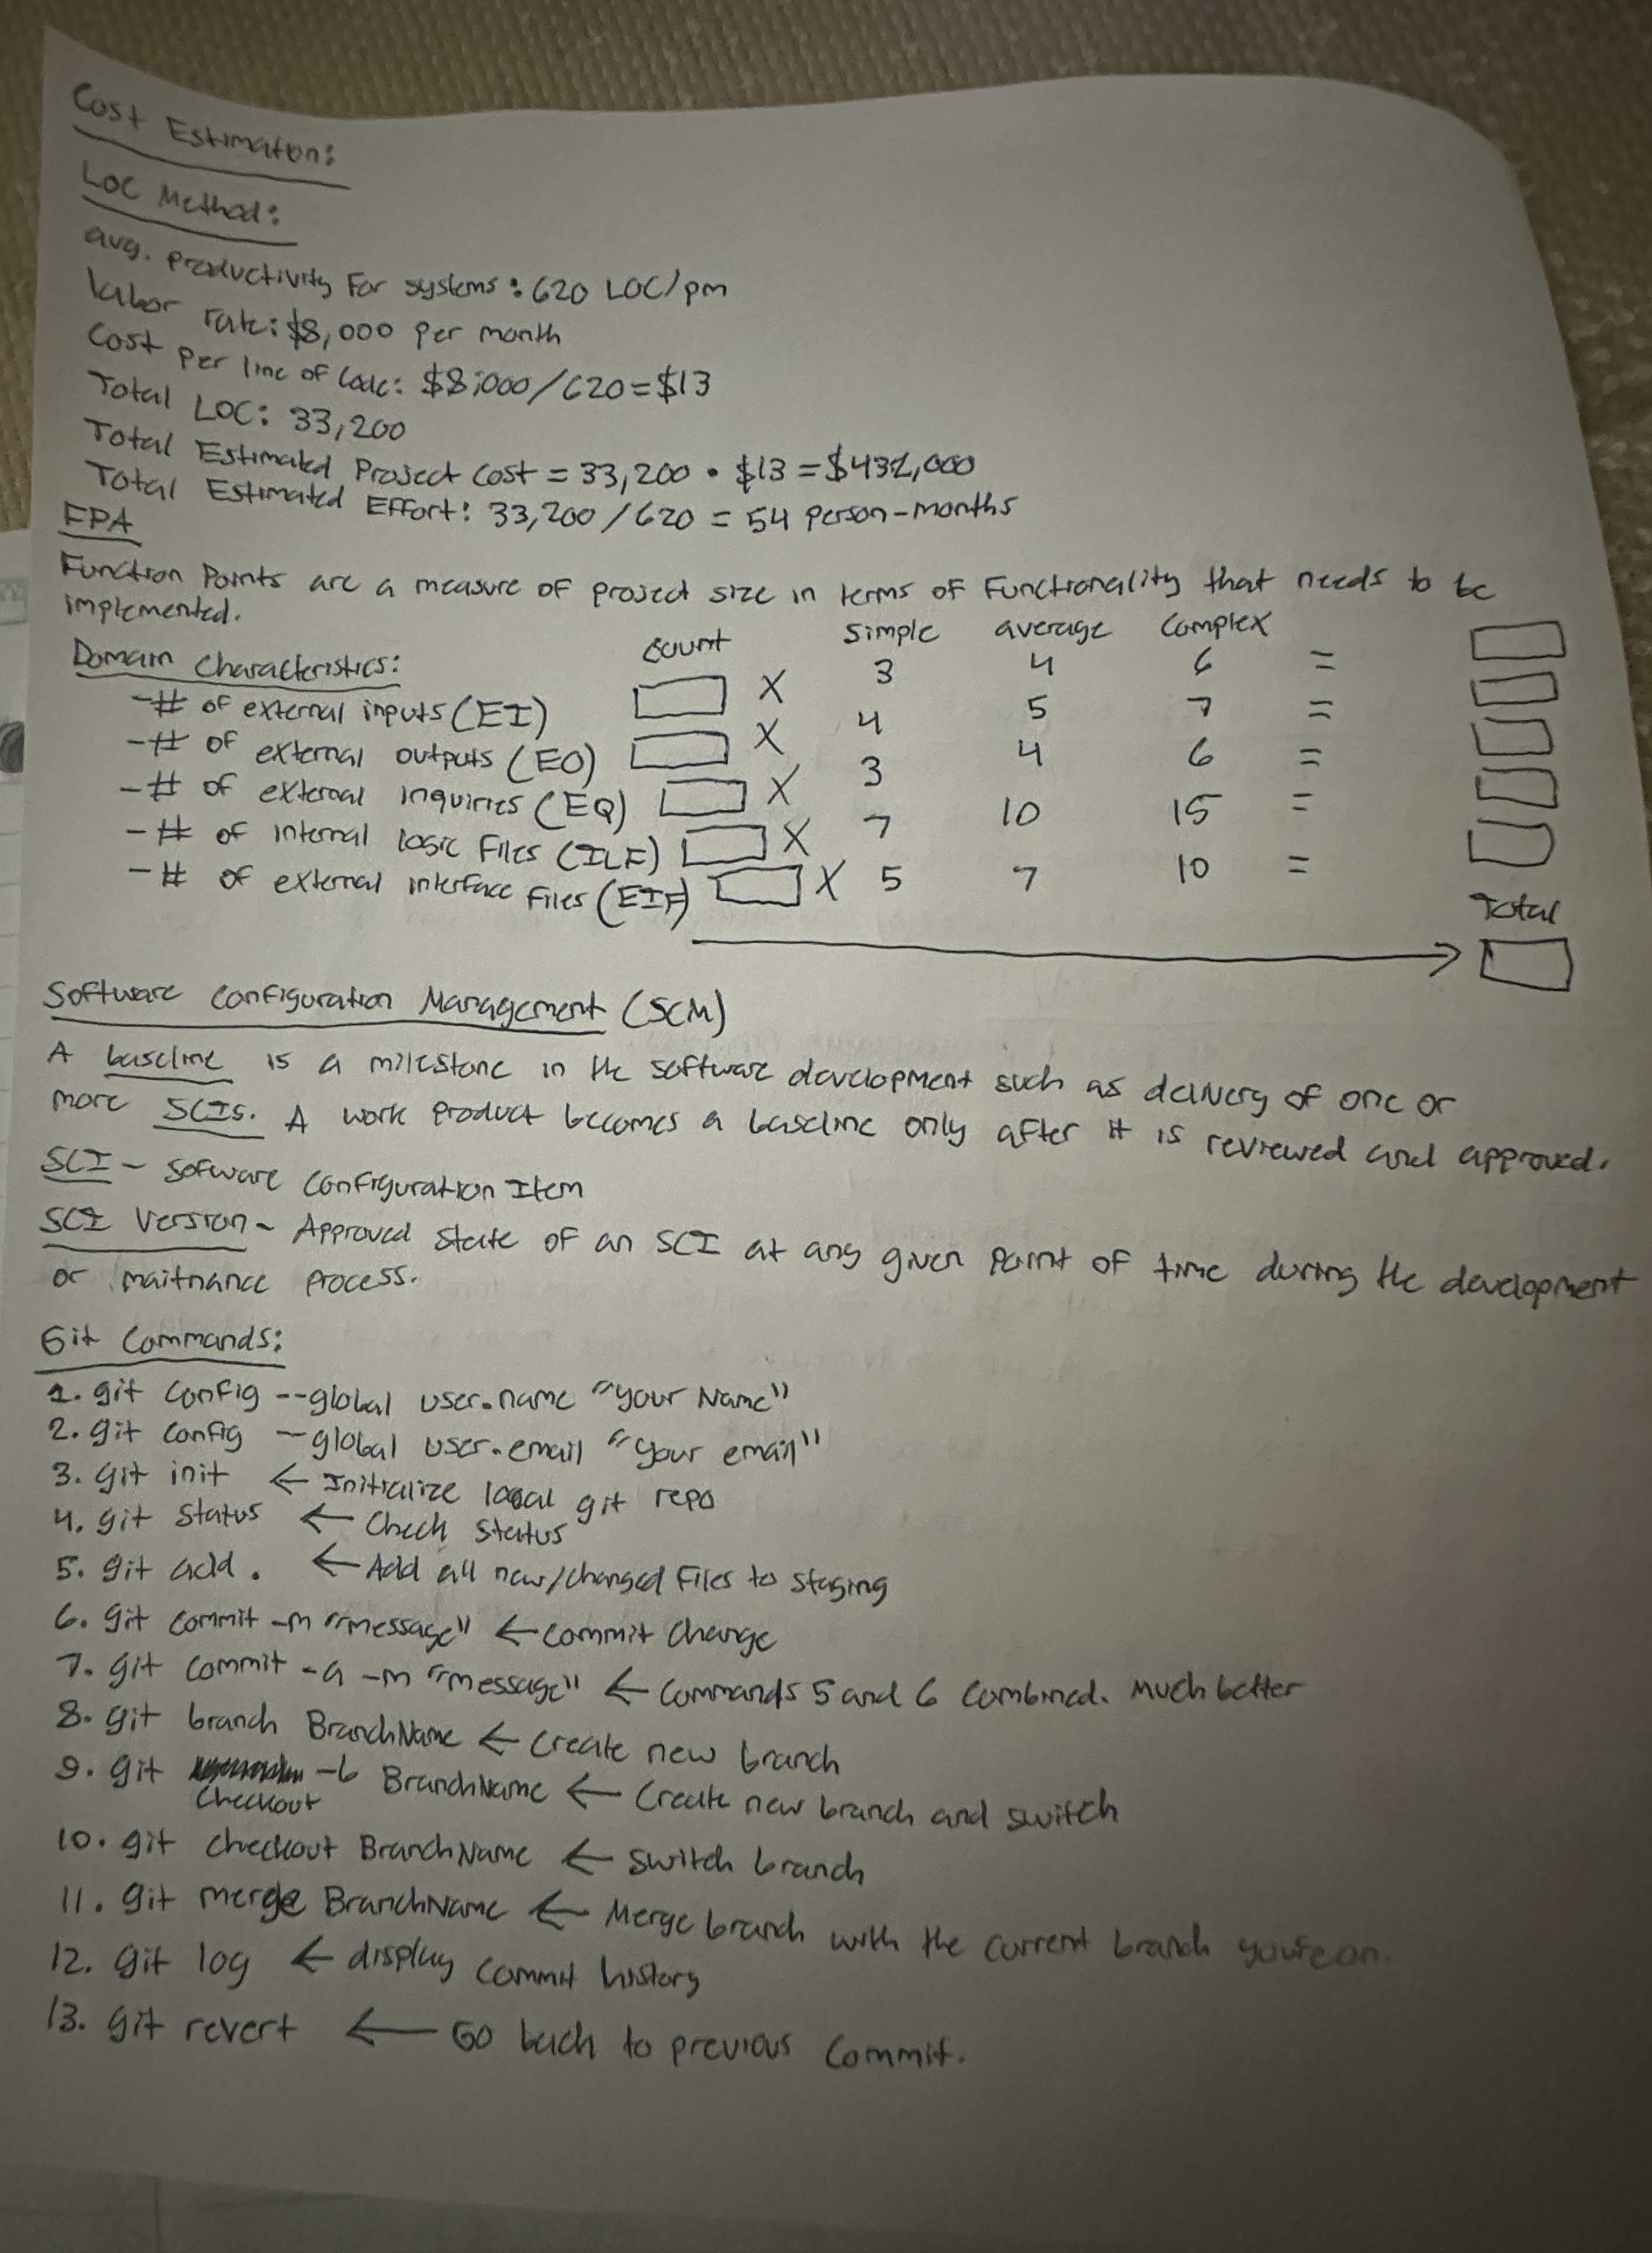 Cost Estimation:
LOC Method:
avg. productivity For systems: 620 LOC/pm
labor rate: $8,000 per month
Cost per line of Code: $8,000/620=$13
Total LOC: 33,200
Total Estimated Project Cost = 33,200 • $13 = $431,000
Total Estimated Effort: 33,200/620 = 54 person-months
FPA
Function Points are a measure of project size in terms of Functionality that needs to be
implemented.
count simple average complex
Domain Characteristics:
-# of external inputs (EI) X 3 4 6 =
-# of external outputs (EO) X 4 5 7 =
-# of external inquiries (EQ) X 3 4 6 =
-# of internal logic Files (ILF) X 7 10 15 =
-# of external interface Files (EIF) X 5 7 10 =
Total
Software Configuration Management (SCM)
A baseline is a milestone in the software development such as delivery of one or
more SCIs. A work product becomes a baseline only after it is reviewed and approved.
SCI - Sofware Configuration Item
SCI Version - Approved state of an SCI at any given point of time during the development
or maitnance process.
Git Commands:
1. git config --global user.name "your Name"
2. git config --global user.email "your email"
3. git init ← Initialize local git repo
4. git status ← Check status
5. git add . ← Add all new/changed Files to staging
6. git commit -m "message" ← commit change
7. git commit -a -m "message" ← Commands 5 and 6 combined. Much better
8. git branch BranchName ← Create new branch
9. git checkout -b BranchName ← Create new branch and switch
10. git checkout BranchName ← switch branch
11. git merge BranchName ← Merge branch with the current branch you're on.
12. git log ← display commit history
13. git revert ← Go back to previous commit.